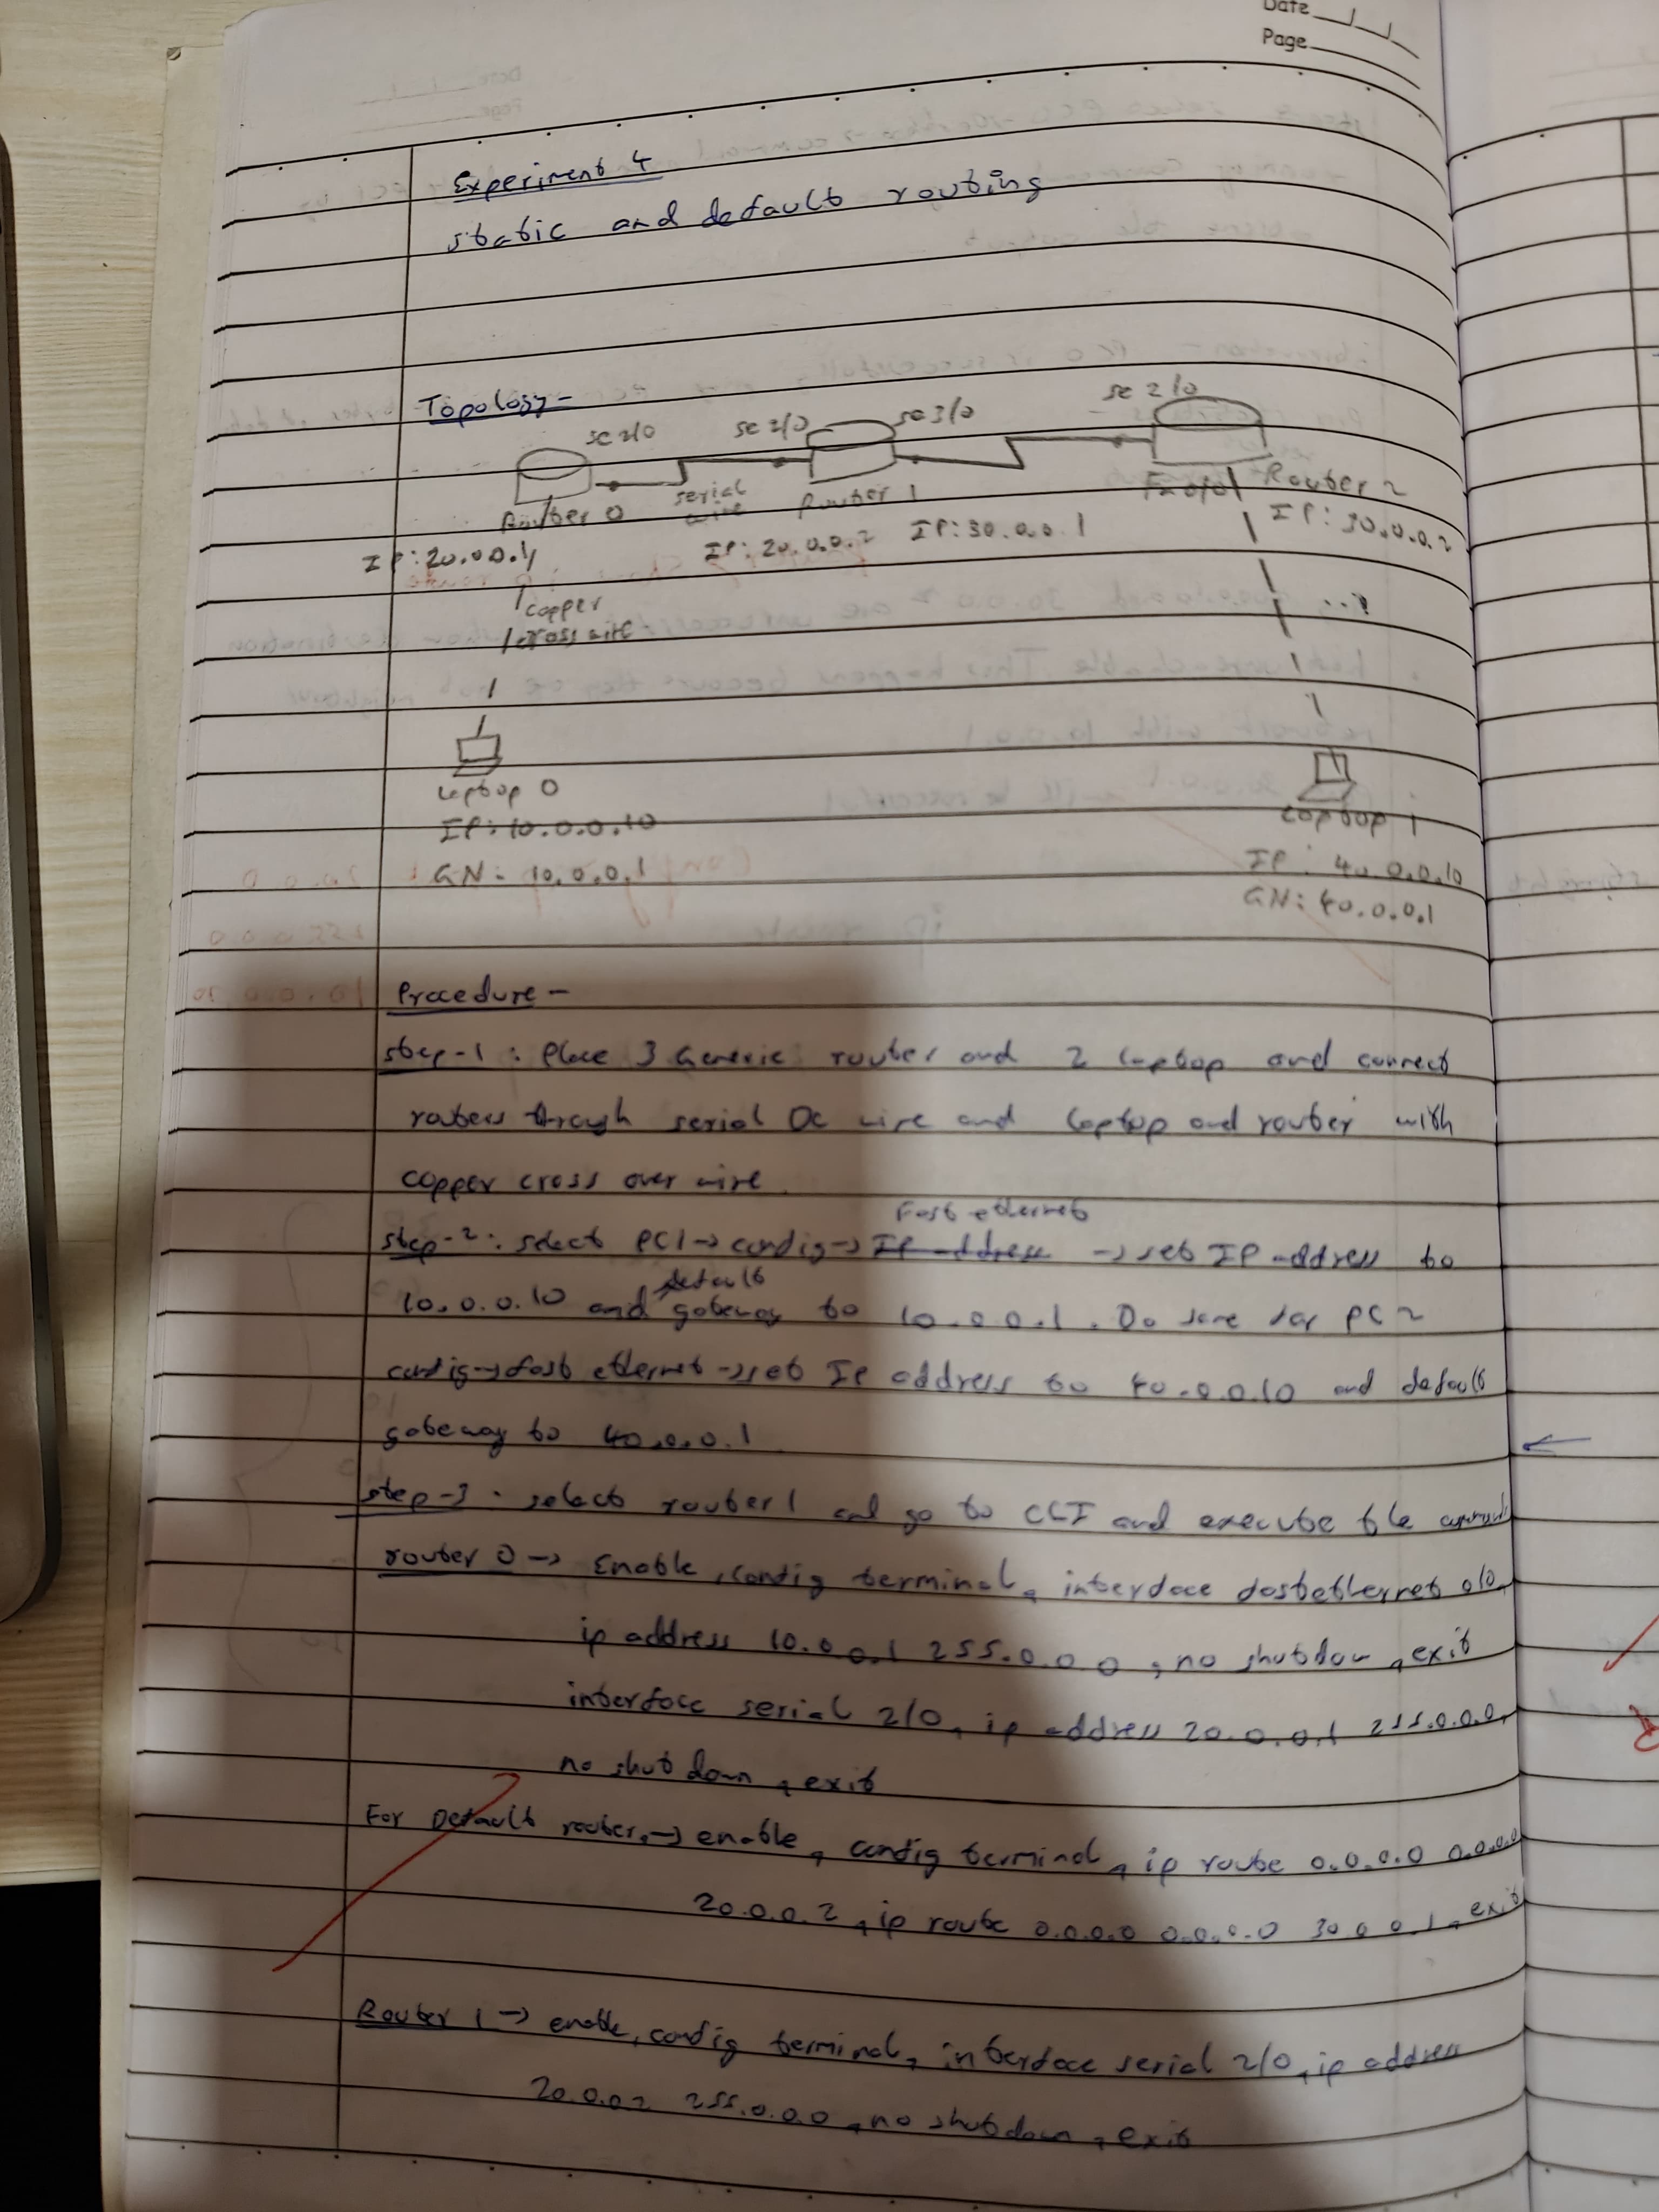 Date
Page
Experiment 4
static and default routing
Topology -
se 2/0 se 2/0 se 3/0 se 2/0
Router 0 serial wire Router 1 Fa 0/0 Router 2
IP: 20.0.0.1 IP: 20.0.0.2 IP: 30.0.0.1 IP: 30.0.0.2
copper
cross wire
Laptop 0
IP: 10.0.0.10
GN: 10.0.0.1
Laptop 1
IP: 40.0.0.10
GN: 40.0.0.1
Procedure -
step-1 : Place 3 Generic router and 2 laptop and connect
routers through serial DC wire and laptop and router with
copper cross over wire.
Fast ethernet
step-2 : select PC1 → config → IP address → set IP address to
10.0.0.10 and default gateway to 10.0.0.1. Do same for PC2
config → fast ethernet → set IP address to 40.0.0.10 and default
gateway to 40.0.0.1
step-3 : select router 1 and go to CLI and execute the commands
router 0 → Enable, config terminal, interface fastethernet 0/0,
ip address 10.0.0.1 255.0.0.0, no shutdown, exit
interface serial 2/0, ip address 20.0.0.1 255.0.0.0,
no shut down, exit
For Default router → enable, config terminal, ip route 0.0.0.0 0.0.0.0
20.0.0.2, ip route 0.0.0.0 0.0.0.0 30.0.0.1, exit
Router 1 → enable, config terminal, interface serial 2/0, ip address
20.0.0.2 255.0.0.0, no shutdown, exit